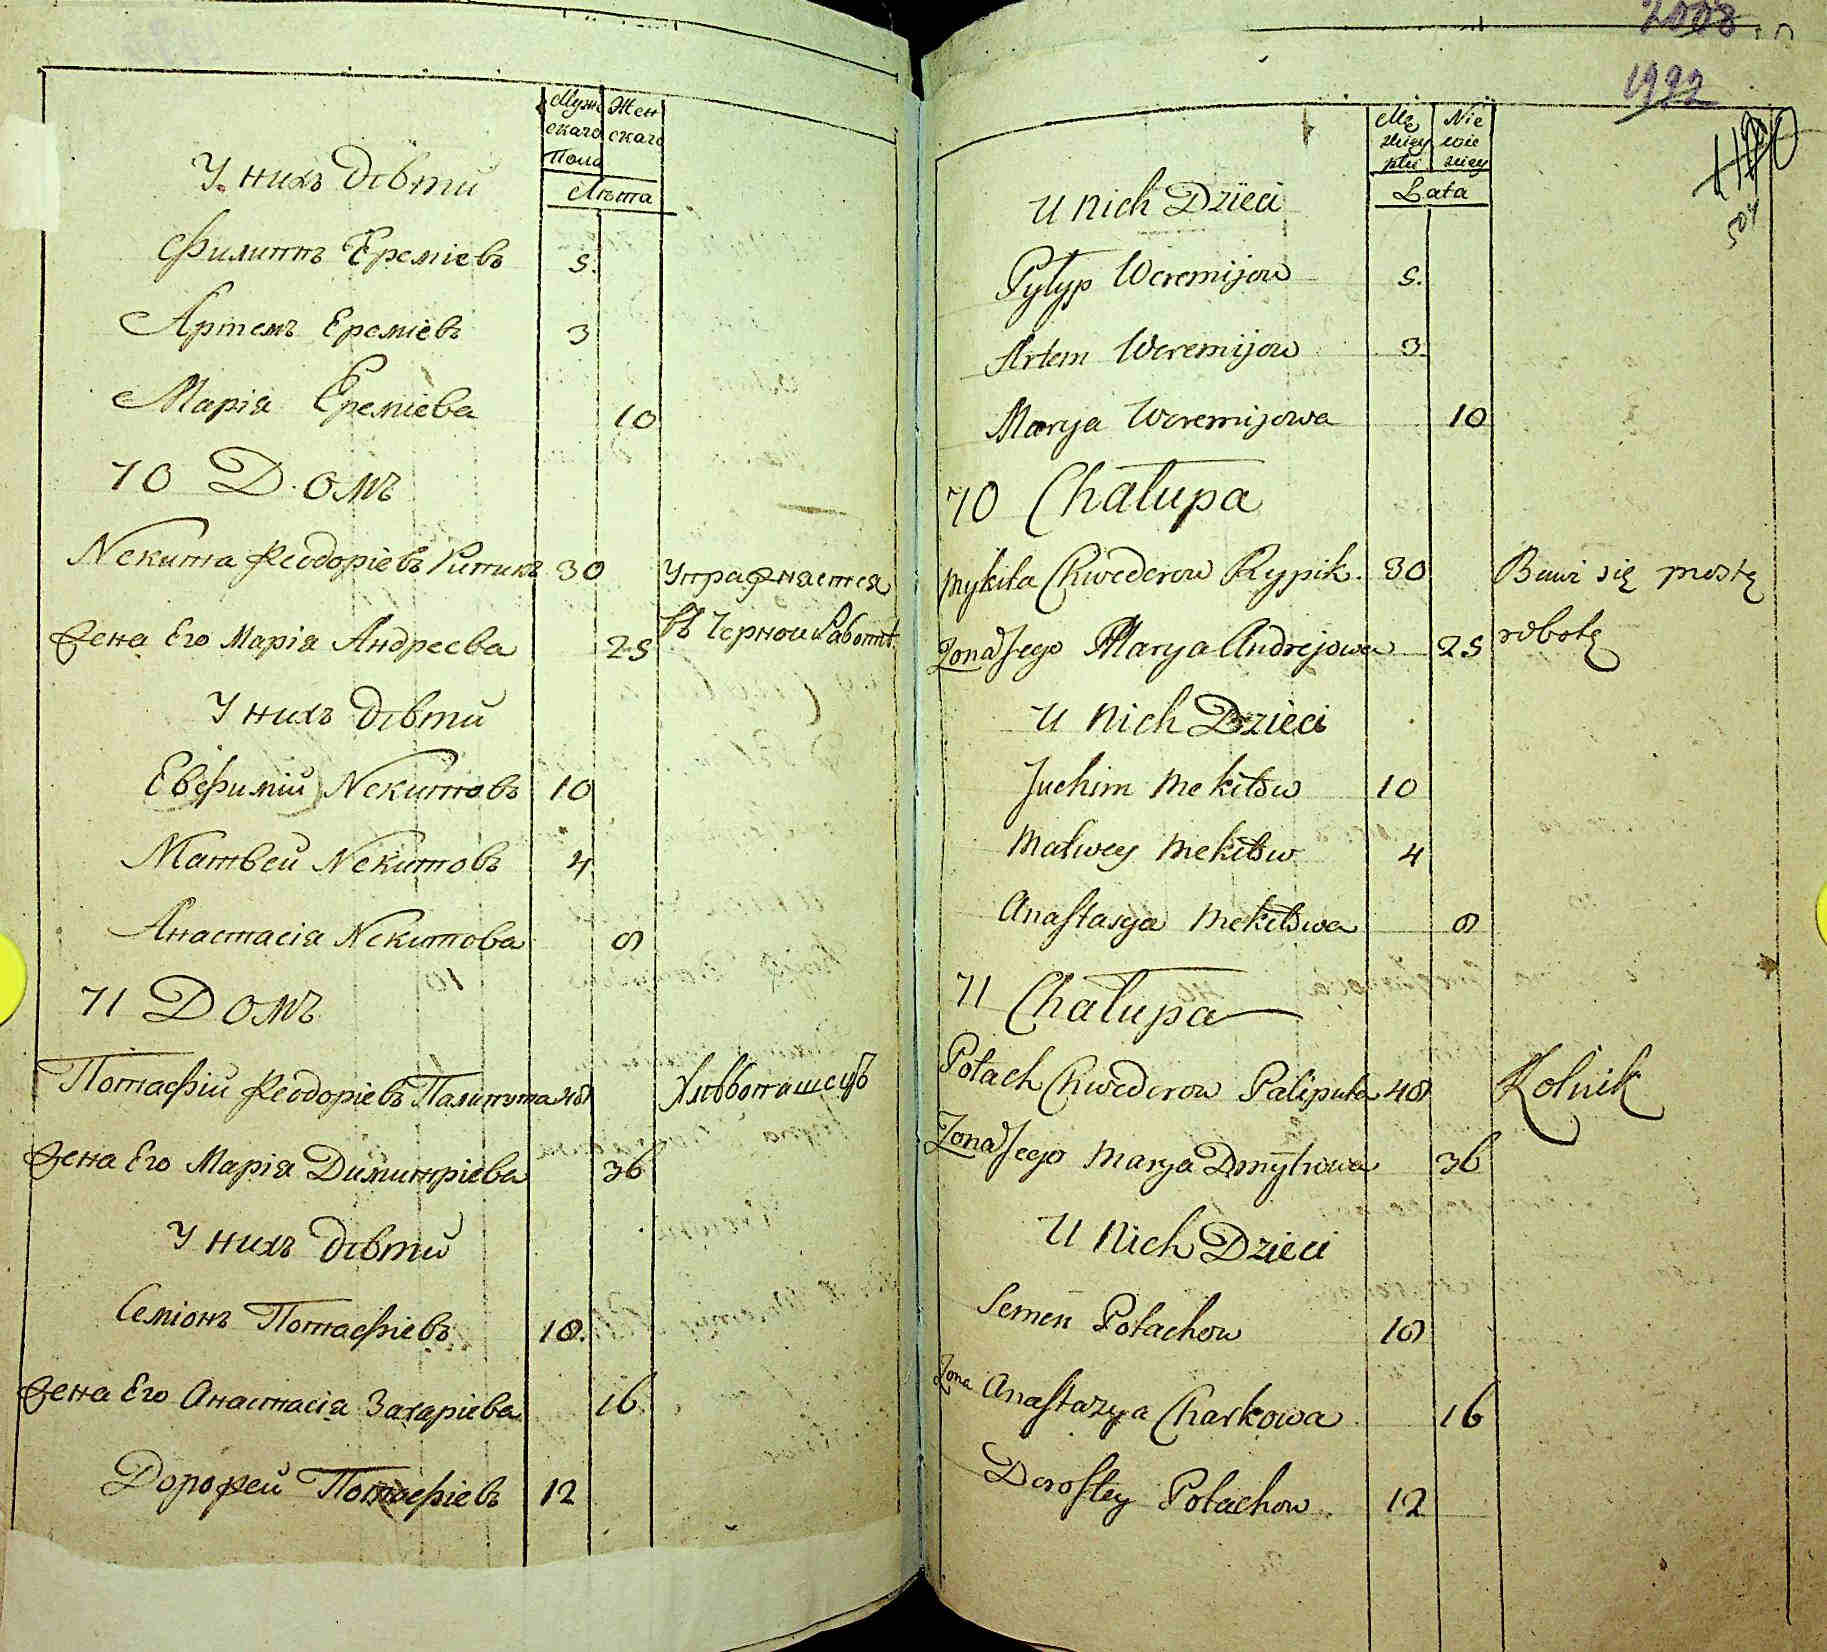 Муж
скаго
пола
Жен
скаго
Лѣта
У нихъ дѣти
Филиппъ Еремѣевъ 5.
Артемъ Еремѣевъ 3
Марія Еремѣева 10
70 Домъ
Никита Феодоріевъ Рипикъ 30 Упражняется
Жена Его Марія Андреева 25 въ Черной Работѣ.
У нихъ дѣти
Евфимій Некитовъ 10
Матвей Некитовъ 4
Анастасія Некитова 8
71 Домъ
Потафій Феодоріевъ Палипута 48 Хлѣбопашецъ
Жена Его Марія Димитріева 36
У нихъ дѣти
Семіонъ Потафіевъ 18.
Жена Его Анастасія Захаріева 16
Дорофей Потафіевъ 12
2008
1992
504
Mę
zkiey
płci
Nie
wie
sciey
Lata
U nich Dzieci
Pylyp Weremijow 5.
Artem Weremijow 3.
Marya Weremijowa 10
70 Chałupa
Mykita Chwederow Rypik. 30 Bawi się prostę
Zona Jego Marya Andrejowa 25 robotę
U Nich Dzieci
Juchim Mekitow 10
Matwey Mekitow 4
Anastasya Mekitowa 8
71 Chałupa
Potach Chwederow Paliputa 48 Rolnik
Zona Jego Marya Dmytrowa 36
U Nich Dzieci
Semen Potachow 18
Zona Anastazya Charkowa 16
Doroftey Potachow 12